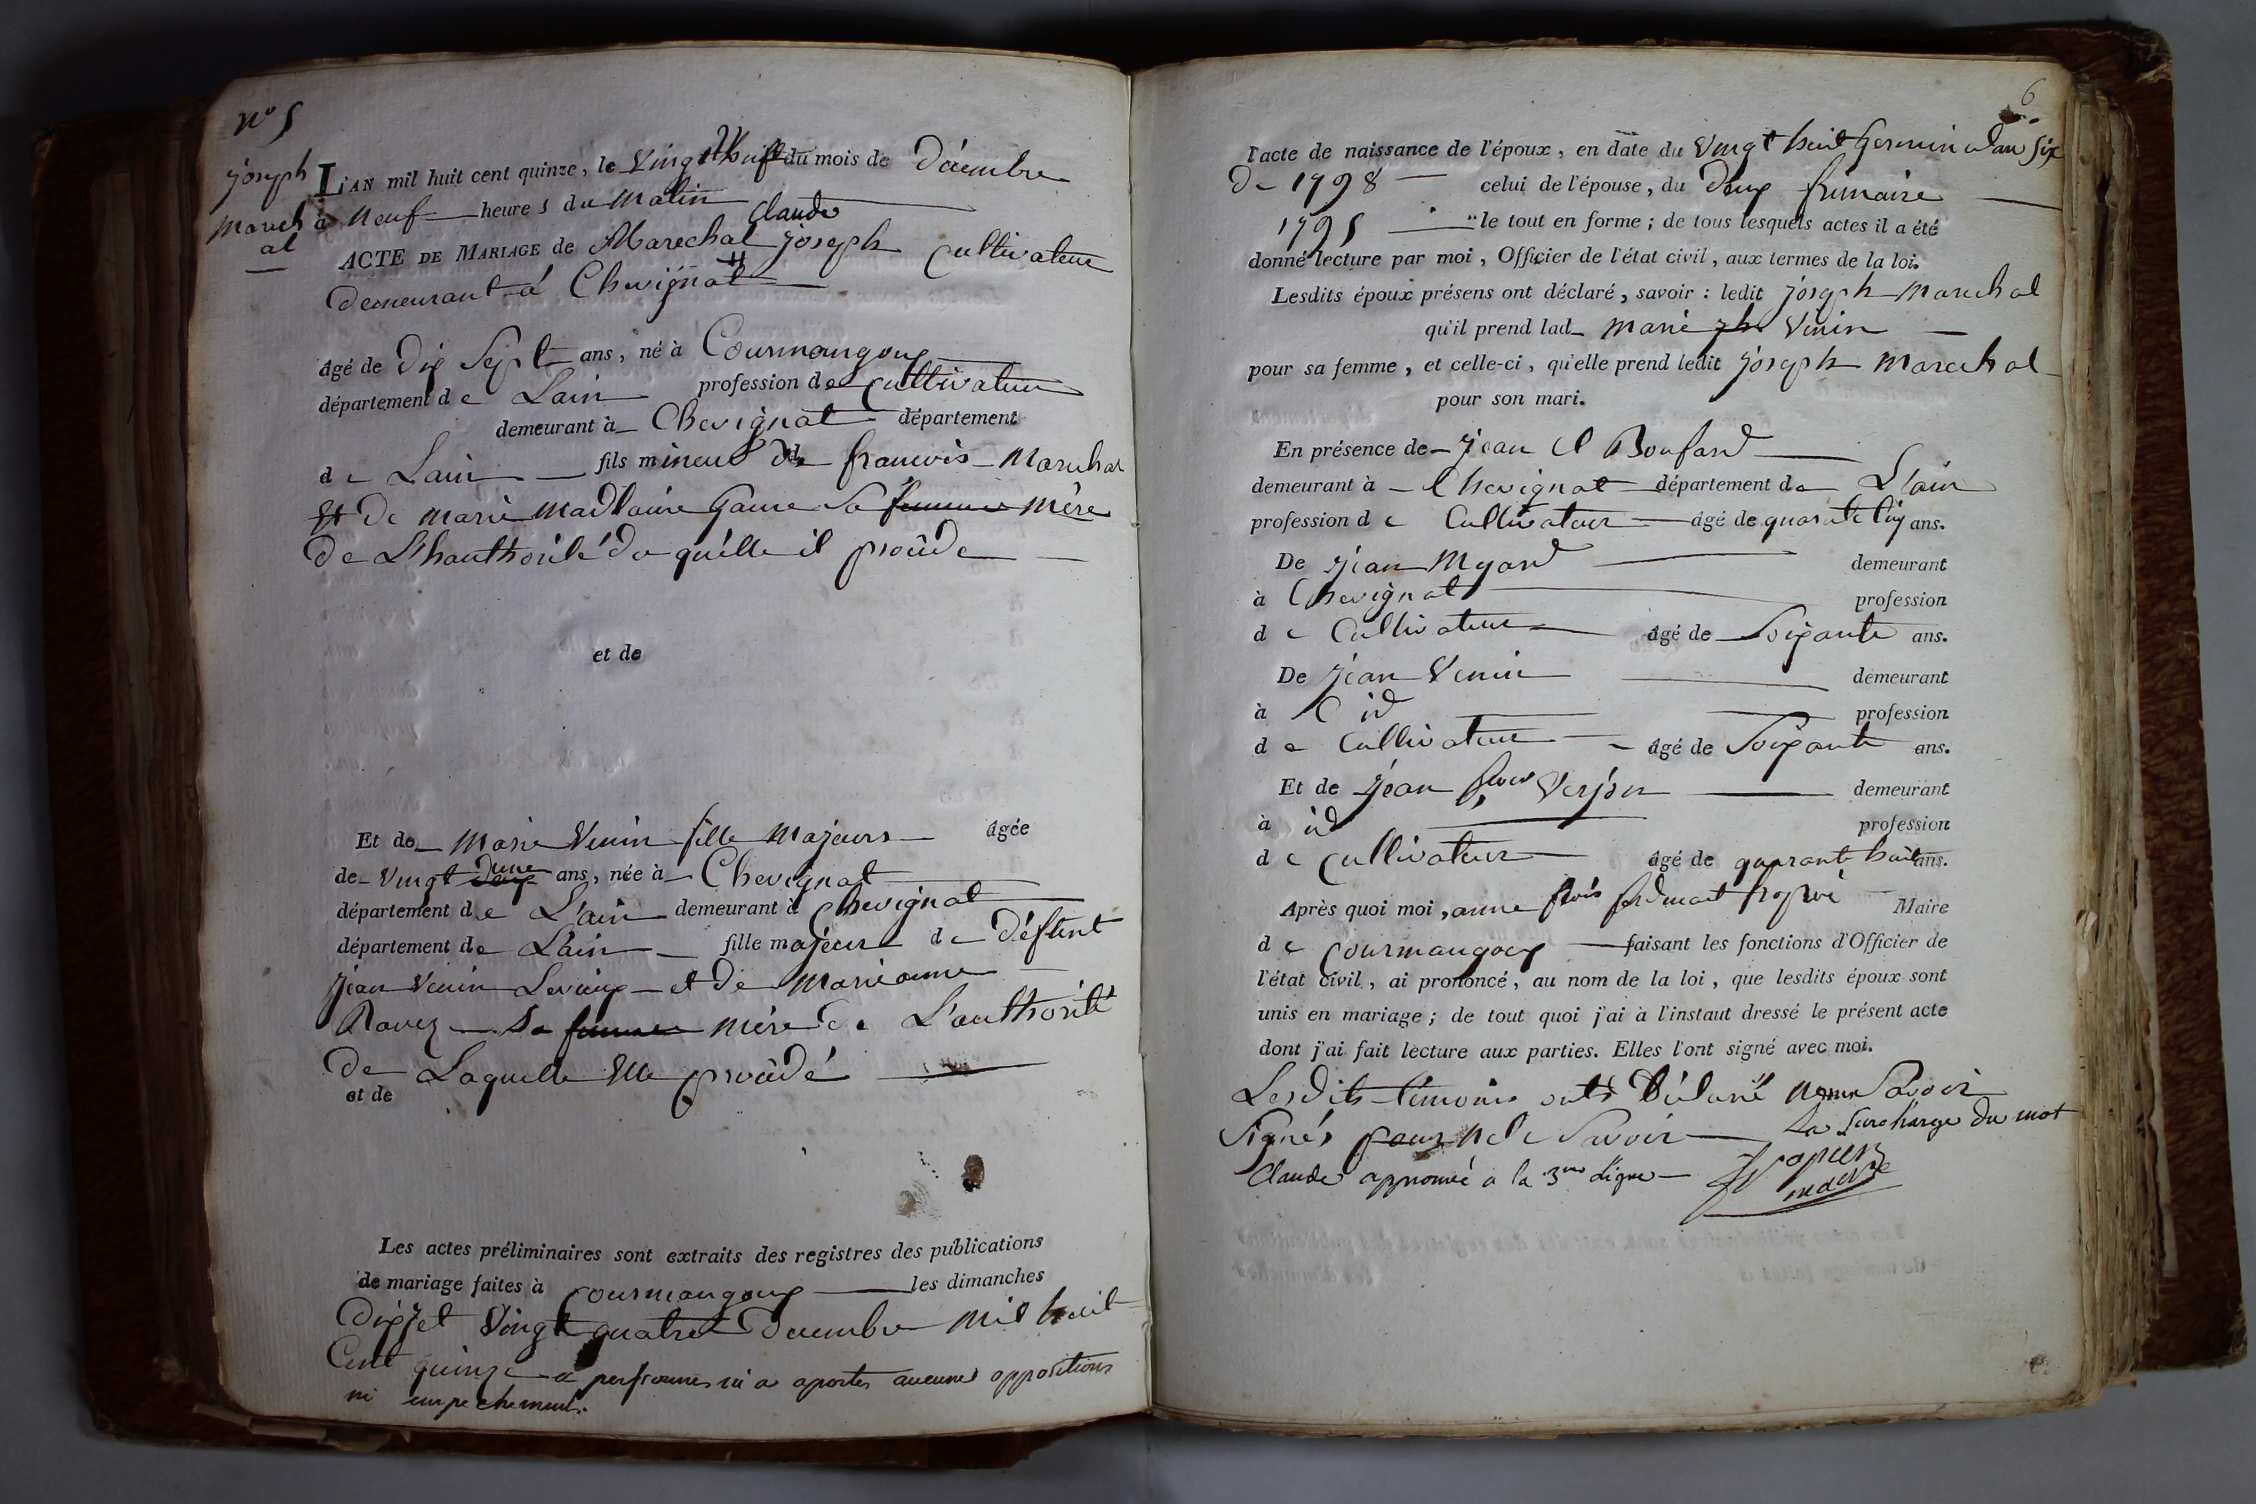 n° 5
joseph
Marech
al
L'AN mil huit cent quinze, le Vingt huit du mois de décembre
à neuf heures du Matin
Claude
ACTE DE MARIAGE de Marechal joseph Cultivateur
demeurant á Chevignat
âgé de dix Sept ans, né à Courmangoux
département de Lain profession de Cultivateur
demeurant à Chevignat département
de Lain fils mineur de francois Marechal
Et de marie Madlaine Gaure Sa femme mère
de L'hauthorité de quélle il procède
et de
Et de Marie Venin fille Majeure âgée
de Vingt deux une ans, née à Chevignat
département de L'ain demeurant à Chevignat
département de Lain fille majeur de défunt
jean Venin Levieux et de Marie anne
Ravez Sa femme mère de L'authorité
de Laquelle Elle procèdé
et de
Les actes préliminaires sont extraits des registres des publications
de mariage faites à Courmangoux les dimanches
dix Set Vingt quatre decembre mil huit
Cent quinze a personnes ni a aportes aucunes oppositions
ni empechement.
6
l'acte de naissance de l'époux, en date du Vingt huit Germinal an Six
De 1798 celui de l'épouse, du deux frimaire
1795 le tout en forme; de tous lesquels actes il a été
donné lecture par moi, Officier de l'état civil, aux termes de la loi.
Lesdits époux présens ont déclaré, savoir : ledit joseph Marechal
qu'il prend lad. Marie Venin
pour sa femme, et celle-ci, qu'elle prend ledit joseph Marechal
pour son mari.
En présence de jean Cl Boufard
demeurant à Chevignat département de L'ain
profession de Cultivateur âgé de quarante Cinq ans.
De jean Myard demeurant
à Chevignat profession
de Cultivateur âgé de Soixante ans.
De jean Venin demeurant
à id profession
de Cultivateur âgé de Soixante ans.
Et de jean Verjon demeurant
à id profession
de Cultivateur âgé de quarante huit ans.
Après quoi moi, anne frois Maire
de Courmangoux faisant les fonctions d'Officier de
l'état civil, ai prononcé, au nom de la loi, que lesdits époux sont
unis en mariage; de tout quoi j'ai à l'instaut dressé le présent acte
dont j'ai fait lecture aux parties. Elles l'ont signé avec moi.
Lesdits témoins ont déclaré Savoir
Signés pour ne le Savoir La Surcharge du mot
Claude approuvé a la 3me Ligne
maire